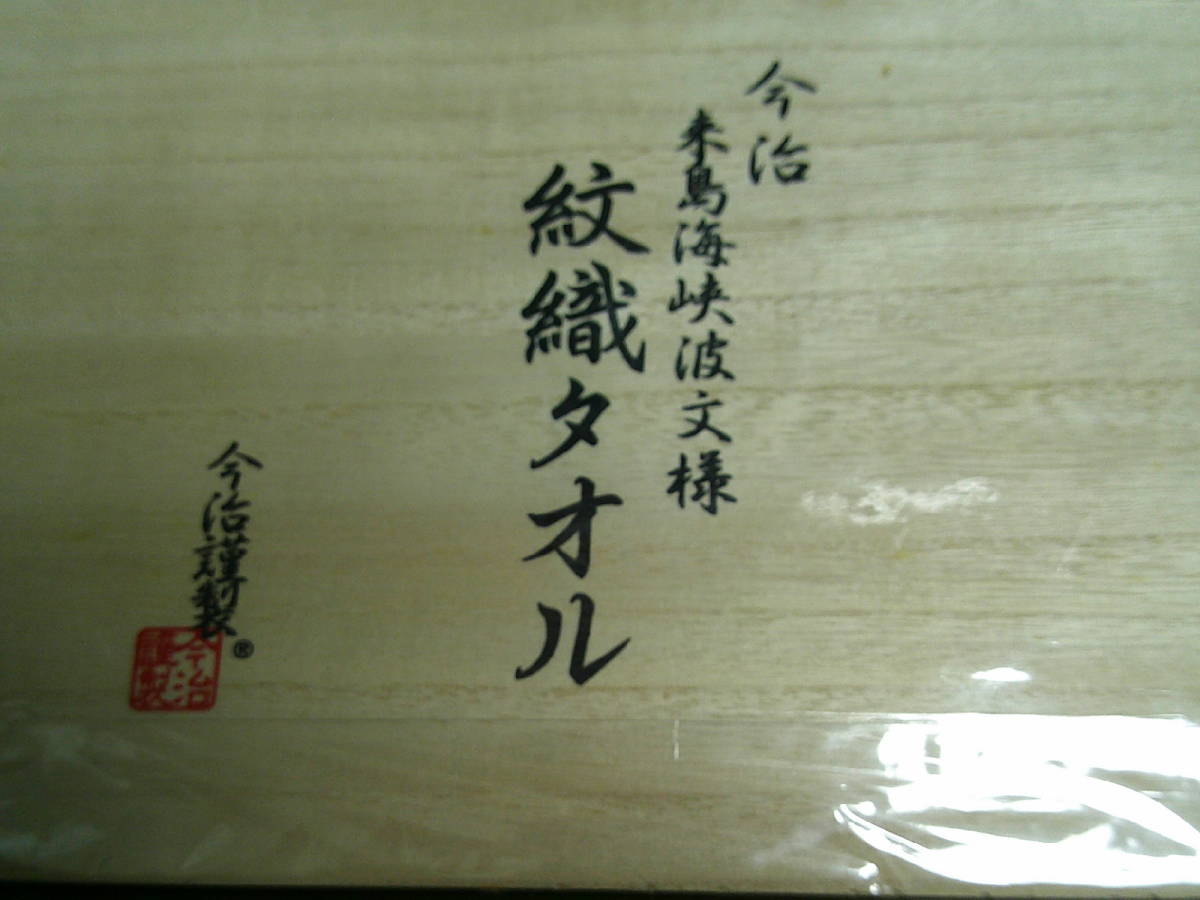 今治
来島海峡波文様
紋織タオル
今治謹製
®